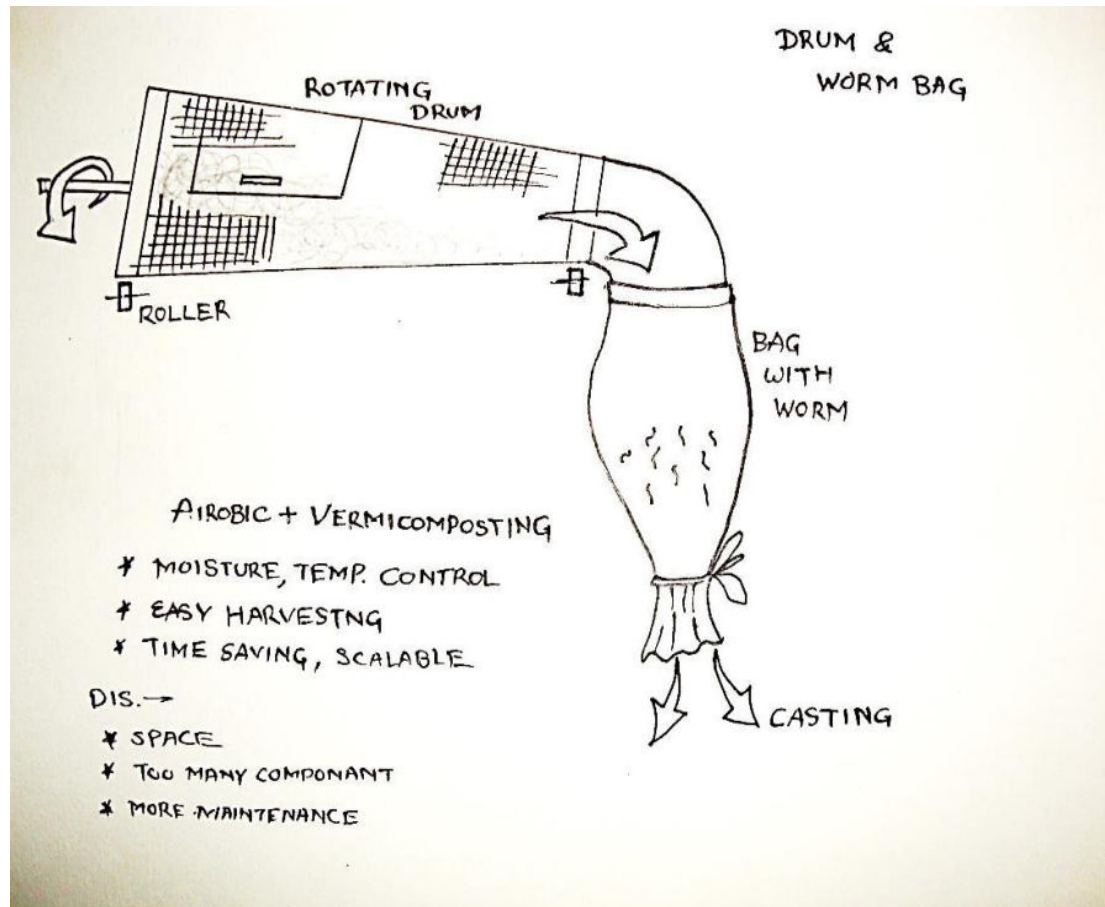 DRUM &
WORM BAG
ROTATING
DRUM
ROLLER
BAG
WITH
WORM
AIROBIC + VERMICOMPOSTING
* MOISTURE, TEMP. CONTROL
* EASY HARVESTNG
* TIME SAVING, SCALABLE
DIS.→
* SPACE
* TOO MANY COMPONANT
* MORE MAINTENANCE
CASTING